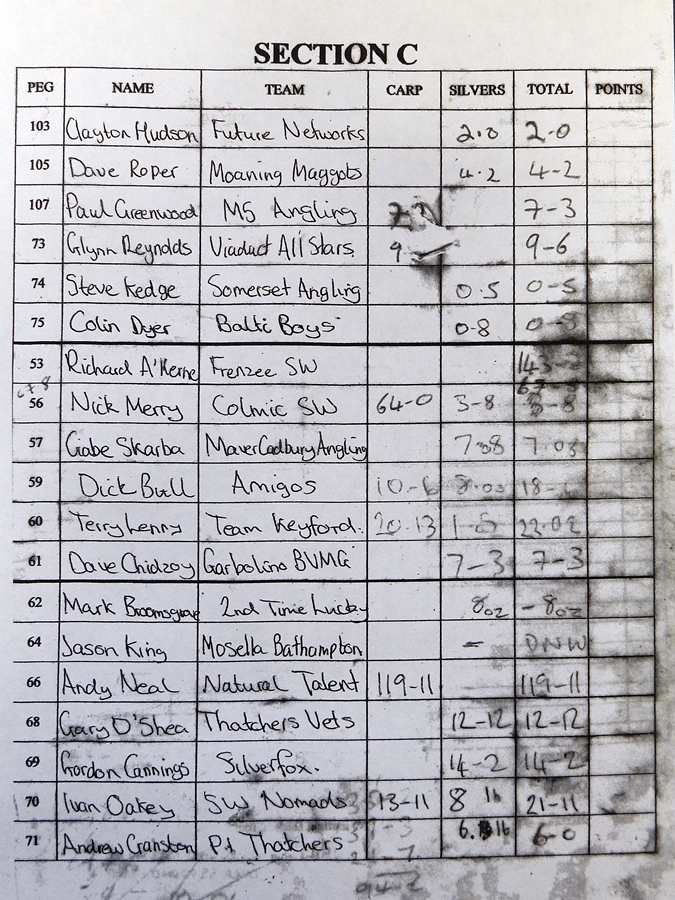 SECTION C
PEG NAME TEAM CARP SILVERS TOTAL POINTS
103 Clayton Hudson Future Networks 2.0 2-0
105 Dave Roper Moaning Maggots 4.2 4-2
107 Paul Greenwood MS Angling 7-3
73 Glynn Reynolds Viaduct All Stars. 9-6
74 Steve Kedge Somerset Angling 0.5 0-5
75 Colin Dyer Balti Boys 0-8 0-8
53 Richard A'Herne Frenzee SW
56 Nick Merry Colmic SW 64-0 3-8
57 Gabe Skarba Maver Cadbury Angling 7-08
59 Dick Bull Amigos 10-6
60 Terry Lenny Team Keyford. 20.13 22.02
61 Dave Chidzoy Garbolino BVMG 7-3 7-3
62 Mark Broomsgrove 2nd Time Lucky 8oz - 8oz
64 Jason King Mosella Bathampton - DNW
66 Andy Neal Natural Talent 119-11 119-11
68 Gary O'Shea Thatchers Vets 12-12 12-12
69 Gordon Cannings Silverfox. 14-2 14-2
70 Ivan Oakey SW Nomads 13-11 8 lb 21-11
71 Andrew Cranston P.I Thatchers 6-0